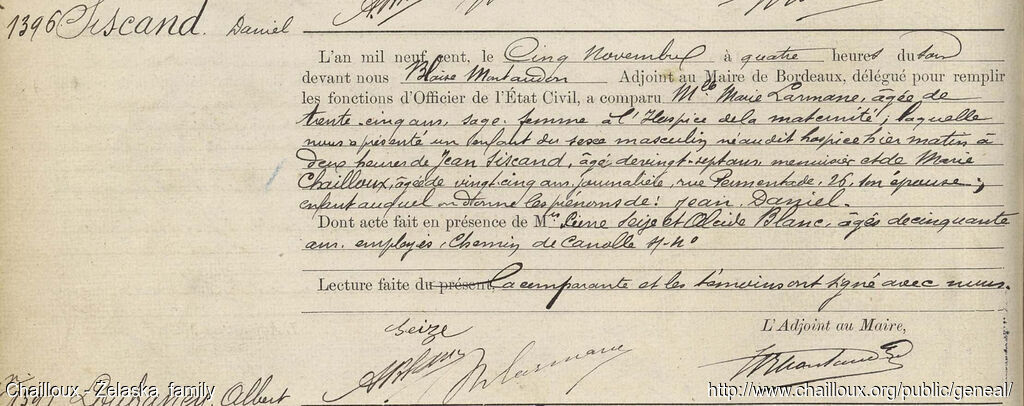 1396 Siscand. Daniel
L'an mil neuf cent, le Cinq Novembre à quatre heures du soir
devant nous Blaise Montaudon Adjoint au Maire de Bordeaux, délégué pour remplir
les fonctions d'Officier de l'État Civil, a comparu Mlle Marie Larmane, âgée de
trente-cinq ans, sage-femme à l'Hospice de la maternité; laquelle
nous a présenté un enfant du sexe masculin né audit hospice hier matin à
deux heures de Jean Siscand, âgé de vingt-sept ans, menuisier et de Marie
Chailloux, âgée de vingt-cinq ans, journalière, rue Permentade, 26, son épouse;
enfant auquel on donne les prénoms de: Jean Daniel.
Dont acte fait en présence de Mrs Seize et Alcide Blanc, âgés de cinquante
ans, employés, Chemin de Canolle
Lecture faite du présent, la comparante et les témoins ont signé avec nous.
Seize
L'Adjoint au Maire,
Albert
Chailloux - Zelaska family
http://www.chailloux.org/public/geneal/